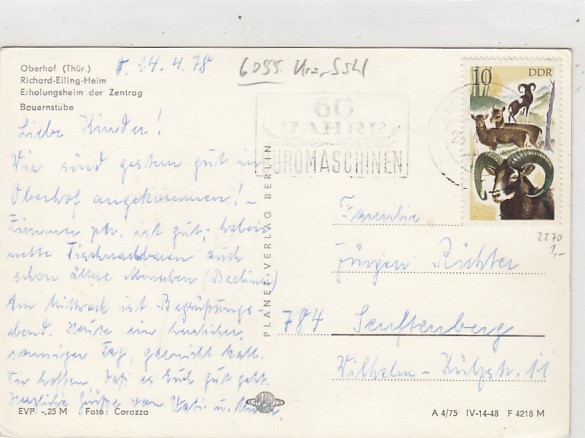 Oberhof (Thür.)
Richard-Eiling-Heim
Erholungsheim der Zentrag
Bauernstube
14.4.78
6055
10 DDR
60
JAHRE
BÜROMASCHINEN
Liebe Kinder!
Wir sind gestern gut in
Oberhof angekommen! -
Zimmer ist gut; haben
nette Tischnachbarn auch
schon ältere Menschen (Berliner)
Am Mittwoch ist Begrüßungs-
abend. Heute ein herrlicher,
sonniger Tag, kalt.
Wir hoffen, daß es Euch gut geht.
Herzliche Grüße von Vati u.
PLANET-VERLAG BERLIN
2270
1,-
Familie
Jürgen Richter
784 Senftenberg
Wilhelm-Külzstr. 11
EVP -,25 M Foto: Corazza
A 4/75 IV-14-48 F 4218 M